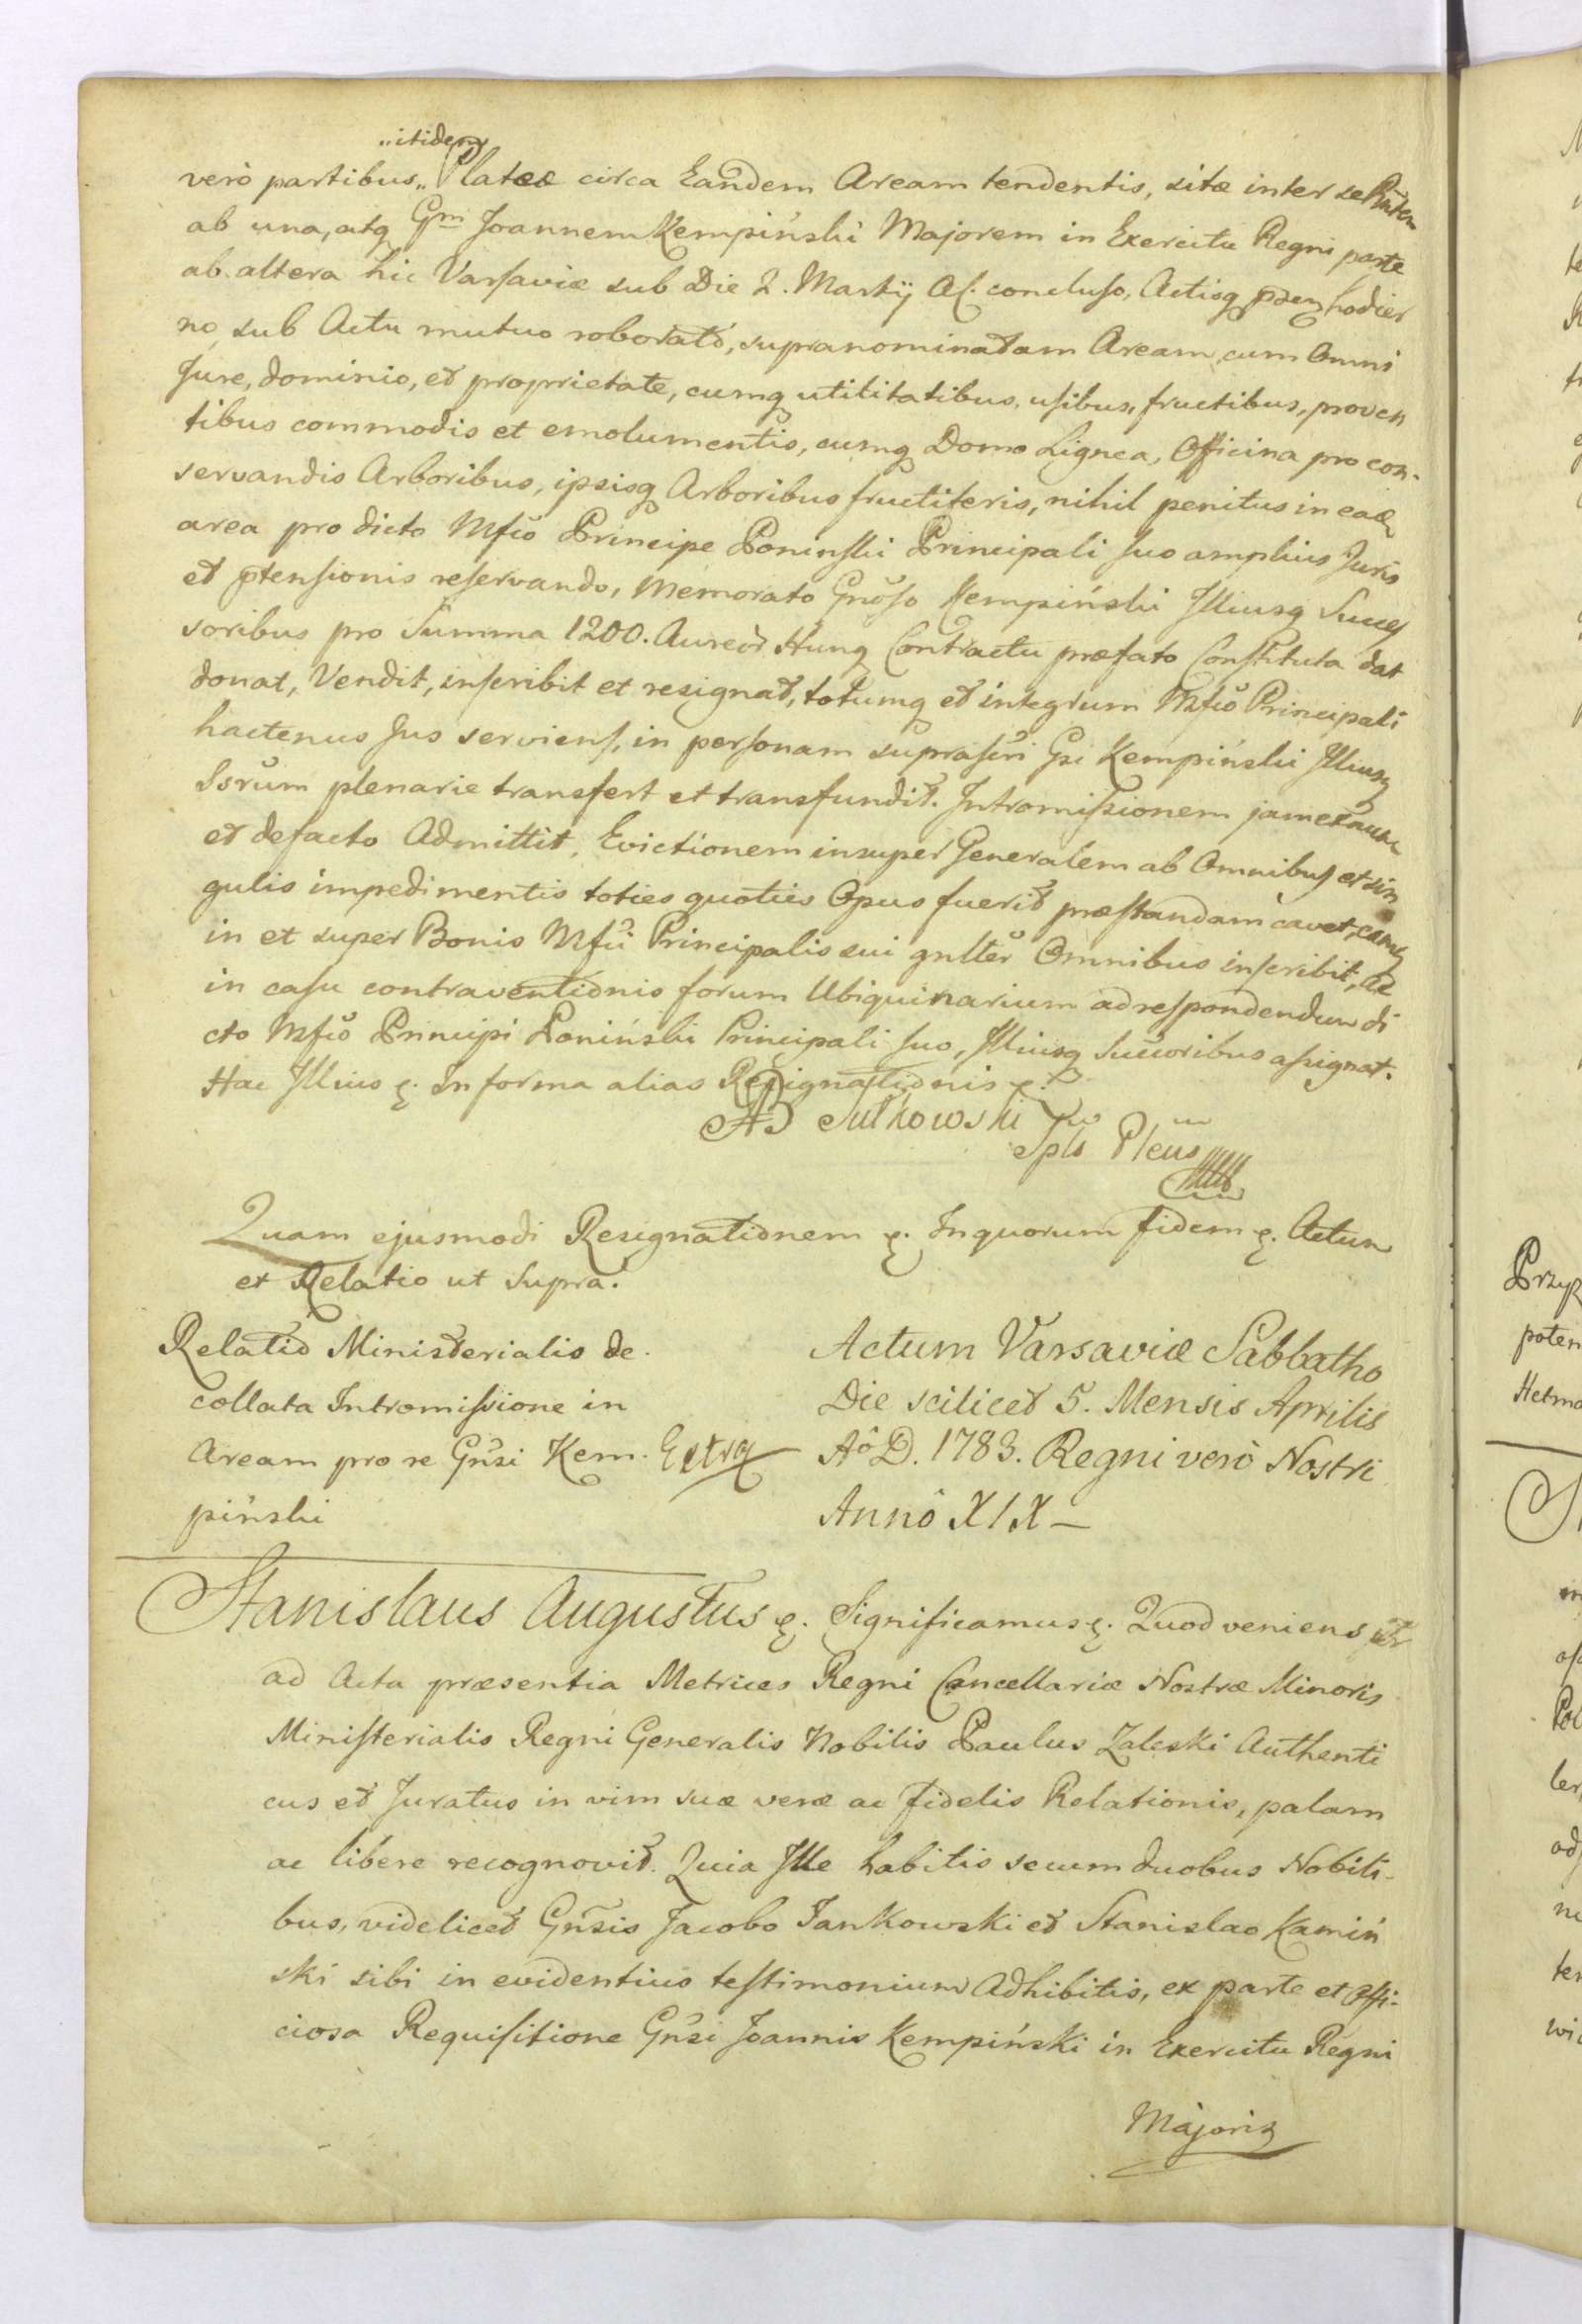 „itidem
verò partibus „ Plateæ circa Eandem Aream tendentis, sitæ inter se Rntem
ab una, atq Gm Joannem Kempiński Majorem in Exercitu Regni parte
ab altera hic Varsaviæ sub Die 2. Martij Af. concluso, Actisq pntbq hodier
no, sub Actu mutuo roborato, supranominatam Aream, cum Omni
Jure, dominio, et proprietate, cumq utilitatibus, usibus, fructibus, proven
tibus commodis et emolumentis, cumq Domo Lignea, Officina pro con-
servandis Arboribus, ipsisq Arboribus fructiferis, nihil penitus in eadē
area pro dicto Mfco Principe Poninski Principali suo amplius Juris
et ptensionis reservando, Memorato Gnoso Kempiński Illiusq Succes
soribus pro Summa 1200. Aureor Hung Contractu præfato Constituta dat
donat, Vendit, inscribit et resignat, totumq et integrum Mfco Principali
hactenus Jus serviens, in personam suprascri Gsi Kempiński Illiusq
Ssrum plenarie transfert et transfundit. Intromissionem jam ex nunc
et defacto Admittit, Evictionem insuper Generalem ab Omnibus et sin
gulis impedimentis toties quoties Opus fuerit præstandam cavet, eamq
in et super Bonis Mfci Principalis sui gnlter Omnibus inscribit, Ac
in casu contraventionis forum Ubiquinarium ad respondendum di
cto Mfco Principi Poniński Principali suo, Illiusq Succoribus assignat.
Hac Illius &. In forma alias Resignationis &.
AB Sułkowski
Spls Pleus
Quam ejusmodi Resignationem &. In quorum fidem &. Actum
et Relatio ut Supra.
Relatio Ministerialis de
collata Intromissione in
Aream pro re Gnsi Kem. Extra
piński
Actum Varsaviæ Sabbatho
Die scilicet 5. Mensis Aprilis
Aô D. 1783. Regni verò Nostri
Annô XIX –
Stanislaus Augustus &. Significamus &. Quod veniens
ad Acta præsentia Metrices Regni Cancellariæ Nostræ Minoris
Ministerialis Regni Generalis Nobilis Paulus Zaleski Authenti
cus et Juratus in vim suæ veræ ac fidelis Relationis, palam
ac libere recognovit. Quia Ille habitis secum duobus Nobili-
bus, videlicet Gnsis Jacobo Jankowski et Stanislao Kamiń
ski sibi in evidentius testimonium Adhibitis, ex parte et Offi-
ciosa Requisitione Gnsi Joannis Kempiński in Exercitu Regni
Majoris